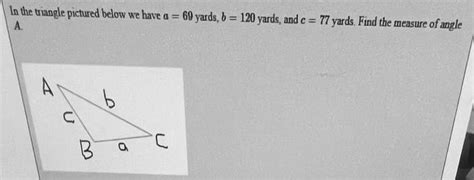 In the triangle pictured below we have a = 69 yards, b = 120 yards, and c = 77 yards. Find the measure of angle
A.
A
b
c
B
a
C